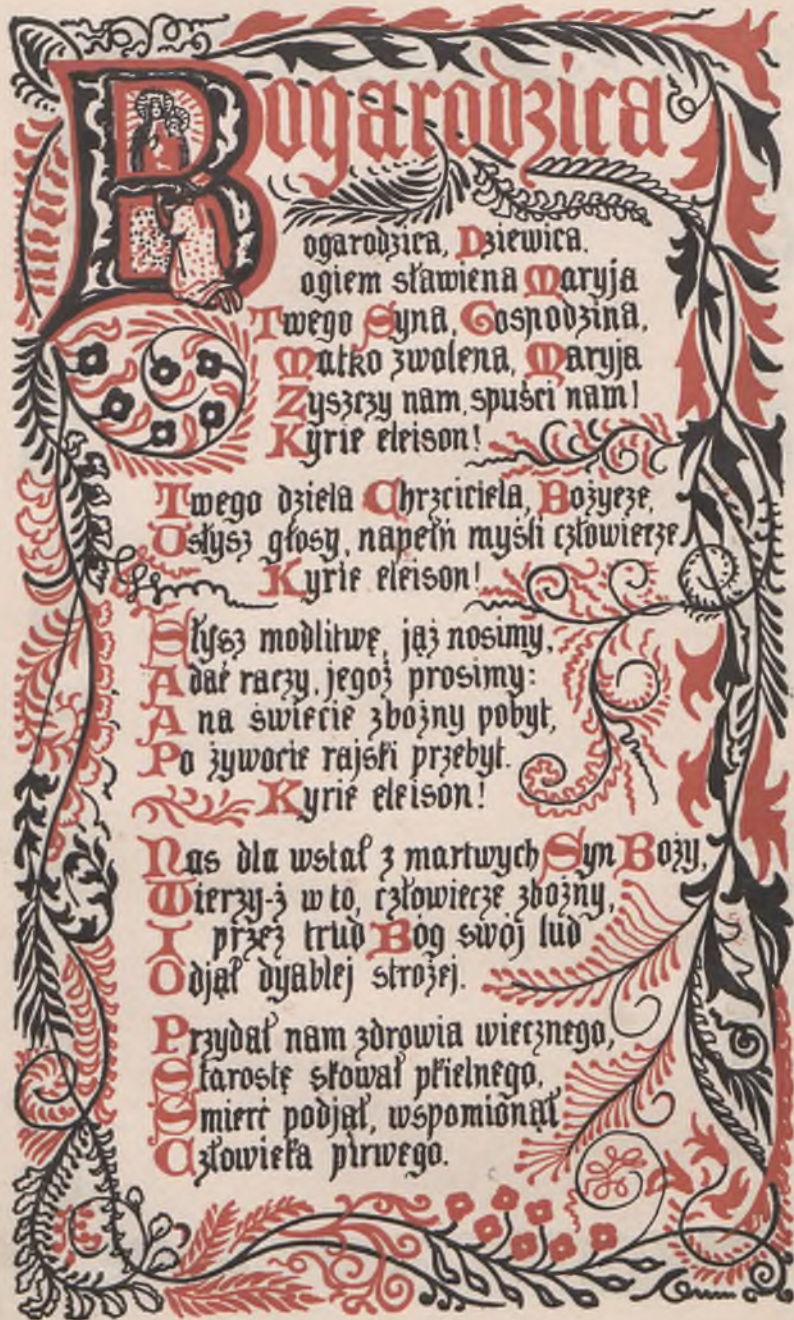 Bogarodzica
ogarodzica, Dziewica.
ogiem sławiena Maryja
Twego Syna, Gospodzina,
Matko zwolena, Maryja
Zyszczy nam, spuści nam!
Kyrie eleison!
Twego dziela Chrzciciela, Bożycze,
Usłysz głosy, napełń myśli człowiecze.
Kyrie eleison!
Słysz modlitwę, jąż nosimy,
A dać raczy, jegoż prosimy:
A na świecie zbożny pobyt,
Po żywocie rajski przebyt.
Kyrie eleison!
Nas dla wstał z martwych Syn Boży,
Wierzy-ż w to, człowiecze zbożny,
I przez trud Bog swój lud
Odjął dyablej strożej.
Przydał nam zdrowia wiecznego,
Starostę skował pkielnego,
Śmierć podjął, wspomionął
Człowieka pirwego.